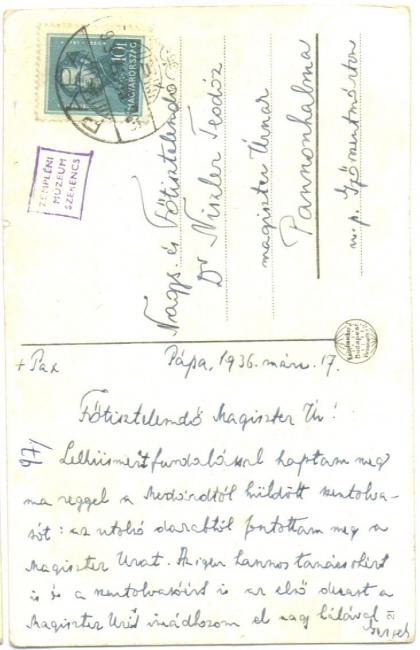 10f
MAGYARORSZÁG
ZEMPLÉNI
MÚZEUM
SZERENCS
Nagys. és Főtisztelendő
Dr Niszler Teodóz
magiszter Úrnak
Pannonhalma
u.p. Győrszentmárton
+ Pax
Pápa, 1936. márc. 17.
Főtisztelendő Magiszter Úr!
97/
Lelkiismertfurdalással kaptam meg
ma reggel a Medárdtól küldött szentolva-
sót: az utolsó darabtól fosztottam meg a
Magiszter Urat. Az igen hasznos tanácsokért
is és a szentolvasóért is az első decast a
Magiszter Úrért imádkozom el nagy hálával